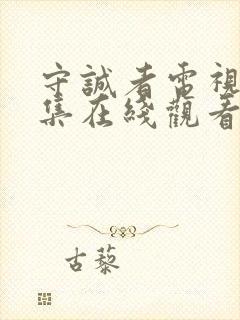 守誠者電視
集在綫觀看
古藜